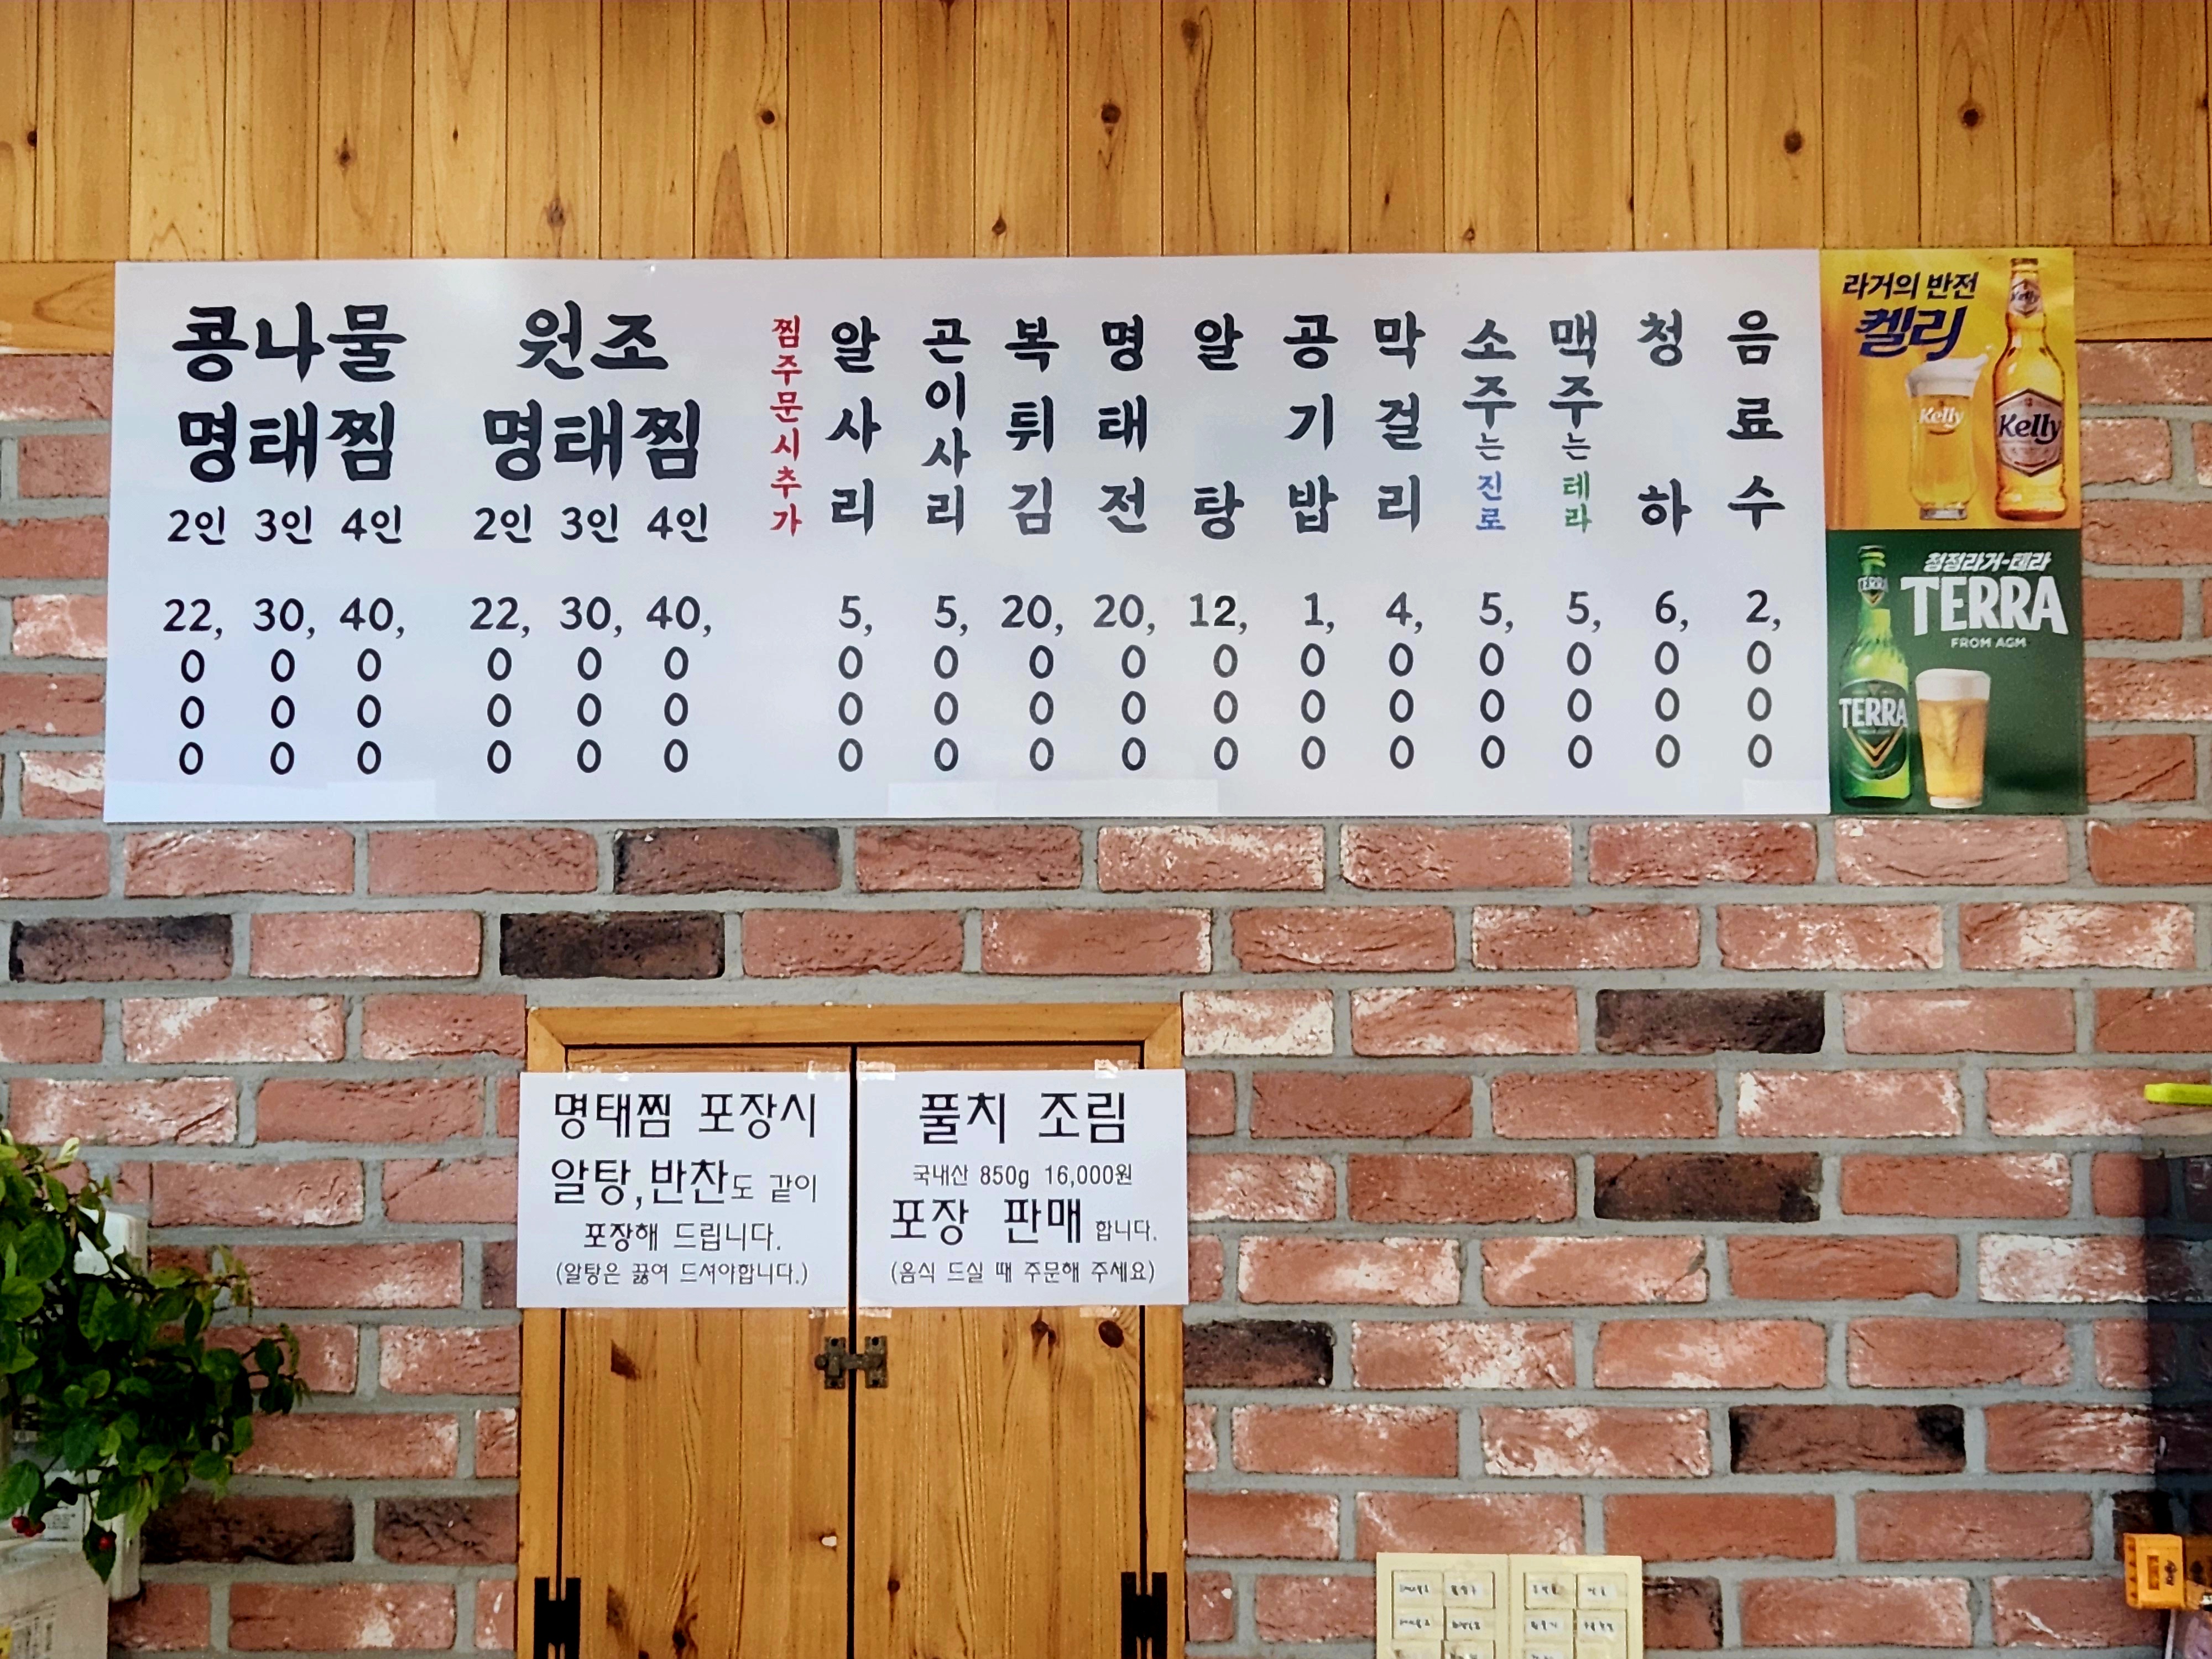 콩나물
명태찜
2인 3인 4인
22,000 30,000 40,000
원조
명태찜
2인 3인 4인
22,000 30,000 40,000
찜주문시추가
알사리 5,000
곤이사리 5,000
복튀김 20,000
명태전 20,000
알탕 12,000
공기밥 1,000
막걸리 4,000
소주는진로 5,000
맥주는테라 5,000
청하 6,000
음료수 2,000
라거의 반전
켈리
Kelly
Kelly
Kelly
청정라거-테라
TERRA
FROM AGM
TERRA
TERRA
명태찜 포장시
알탕,반찬도 같이
포장해 드립니다.
(알탕은 끓여 드셔야합니다.)
풀치 조림
국내산 850g 16,000원
포장 판매 합니다.
(음식 드실 때 주문해 주세요)